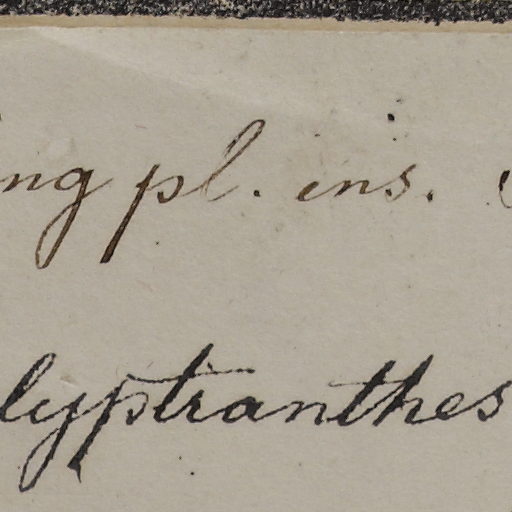 ng pl. ins.
lyptranthes